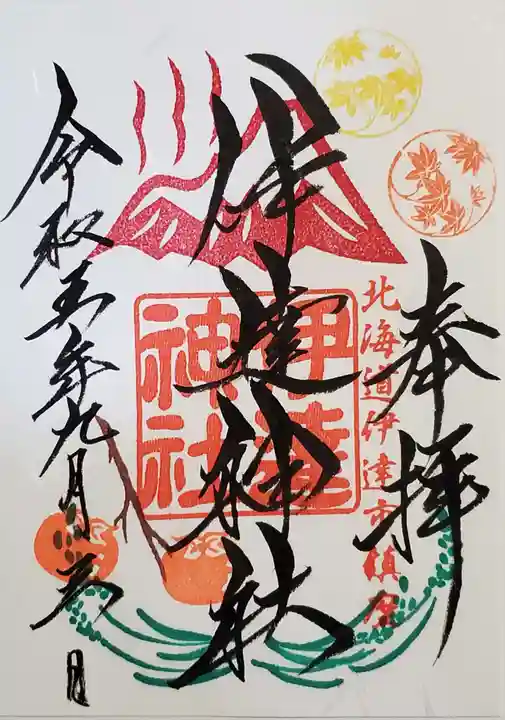 奉拝
北海道伊達市鎮座
伊達神社
伊達
神社
令和五年九月六日